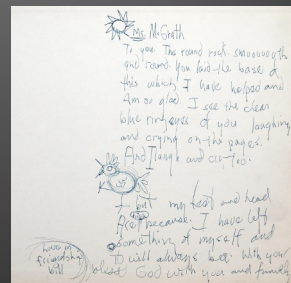 Ms McGrath
To you. This round rock. smooooogth
and round. You laid the base of
this which I have helped and
Am so glad I see the clear
blue ring eyes of you laughing
and crying on the pages.
And I laugh and cry too.
I but my feet and head
Ace because. I have left
something of myself and
it will always be. With your
blest God with you and family
Love in
friendship
bill